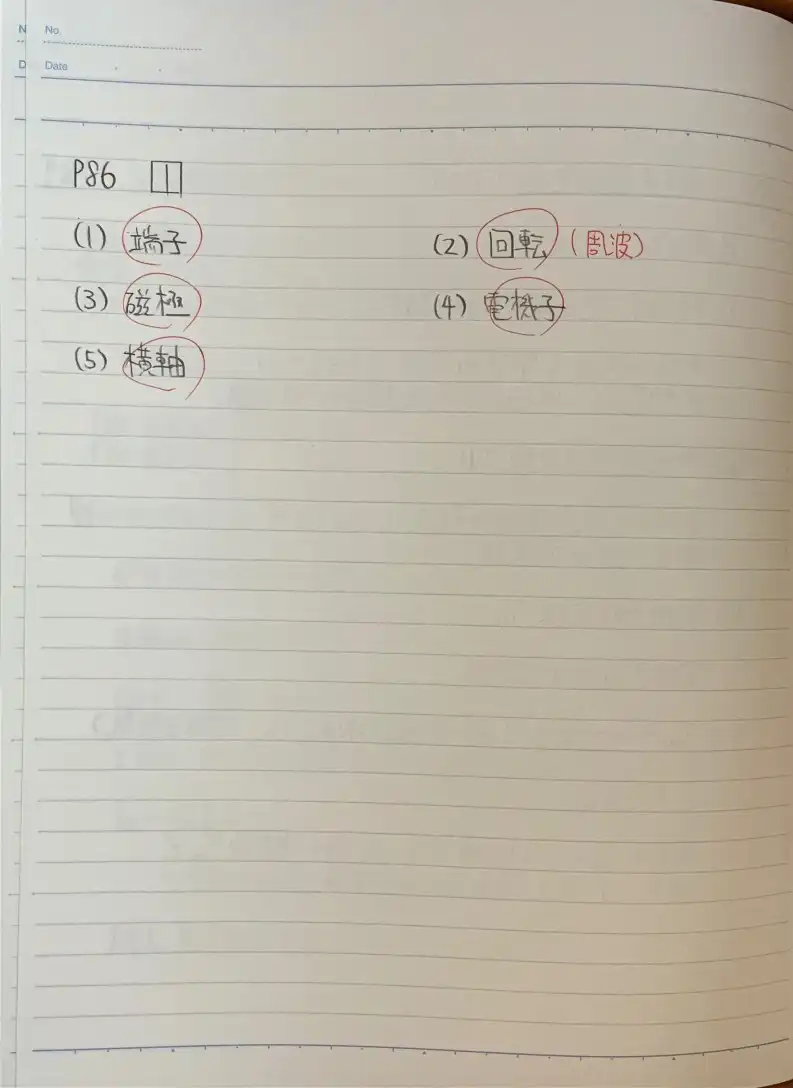 N No.
D Date . .
P86 1
(1) 端子 (2) 回転 (周波)
(3) 磁極 (4) 電機子
(5) 横軸